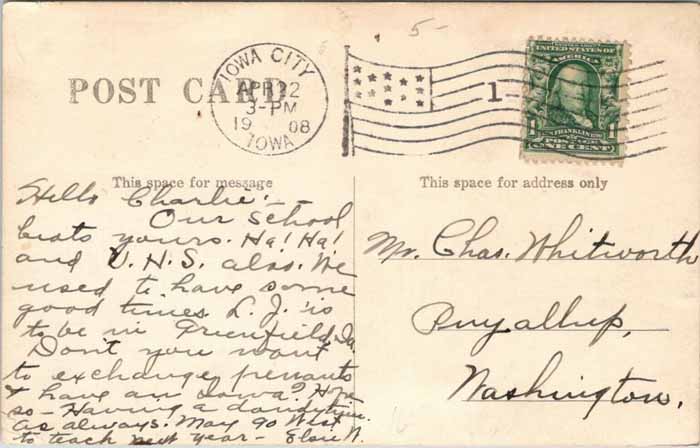 5-
POST CARD
IOWA CITY
APR 22
3-PM
1908
IOWA
1
UNITED STATES OF
AMERICA
FRANKLIN
POSTAGE
1 ONE CENT 1
This space for message
Hello Charlie:-
Our school
beats yours. Ha! Ha!
and U.H.S. also. We
used to have some
good times. L. J. is
to be in Greenfield, Ia.
Don't you want
to exchange pennants
& have an Iowa? Hope
so - Having a dandy time
as always. May go West
to teach next year - Elsie N.
This space for address only
Mr. Chas. Whitworth
Puyallup,
Washington.